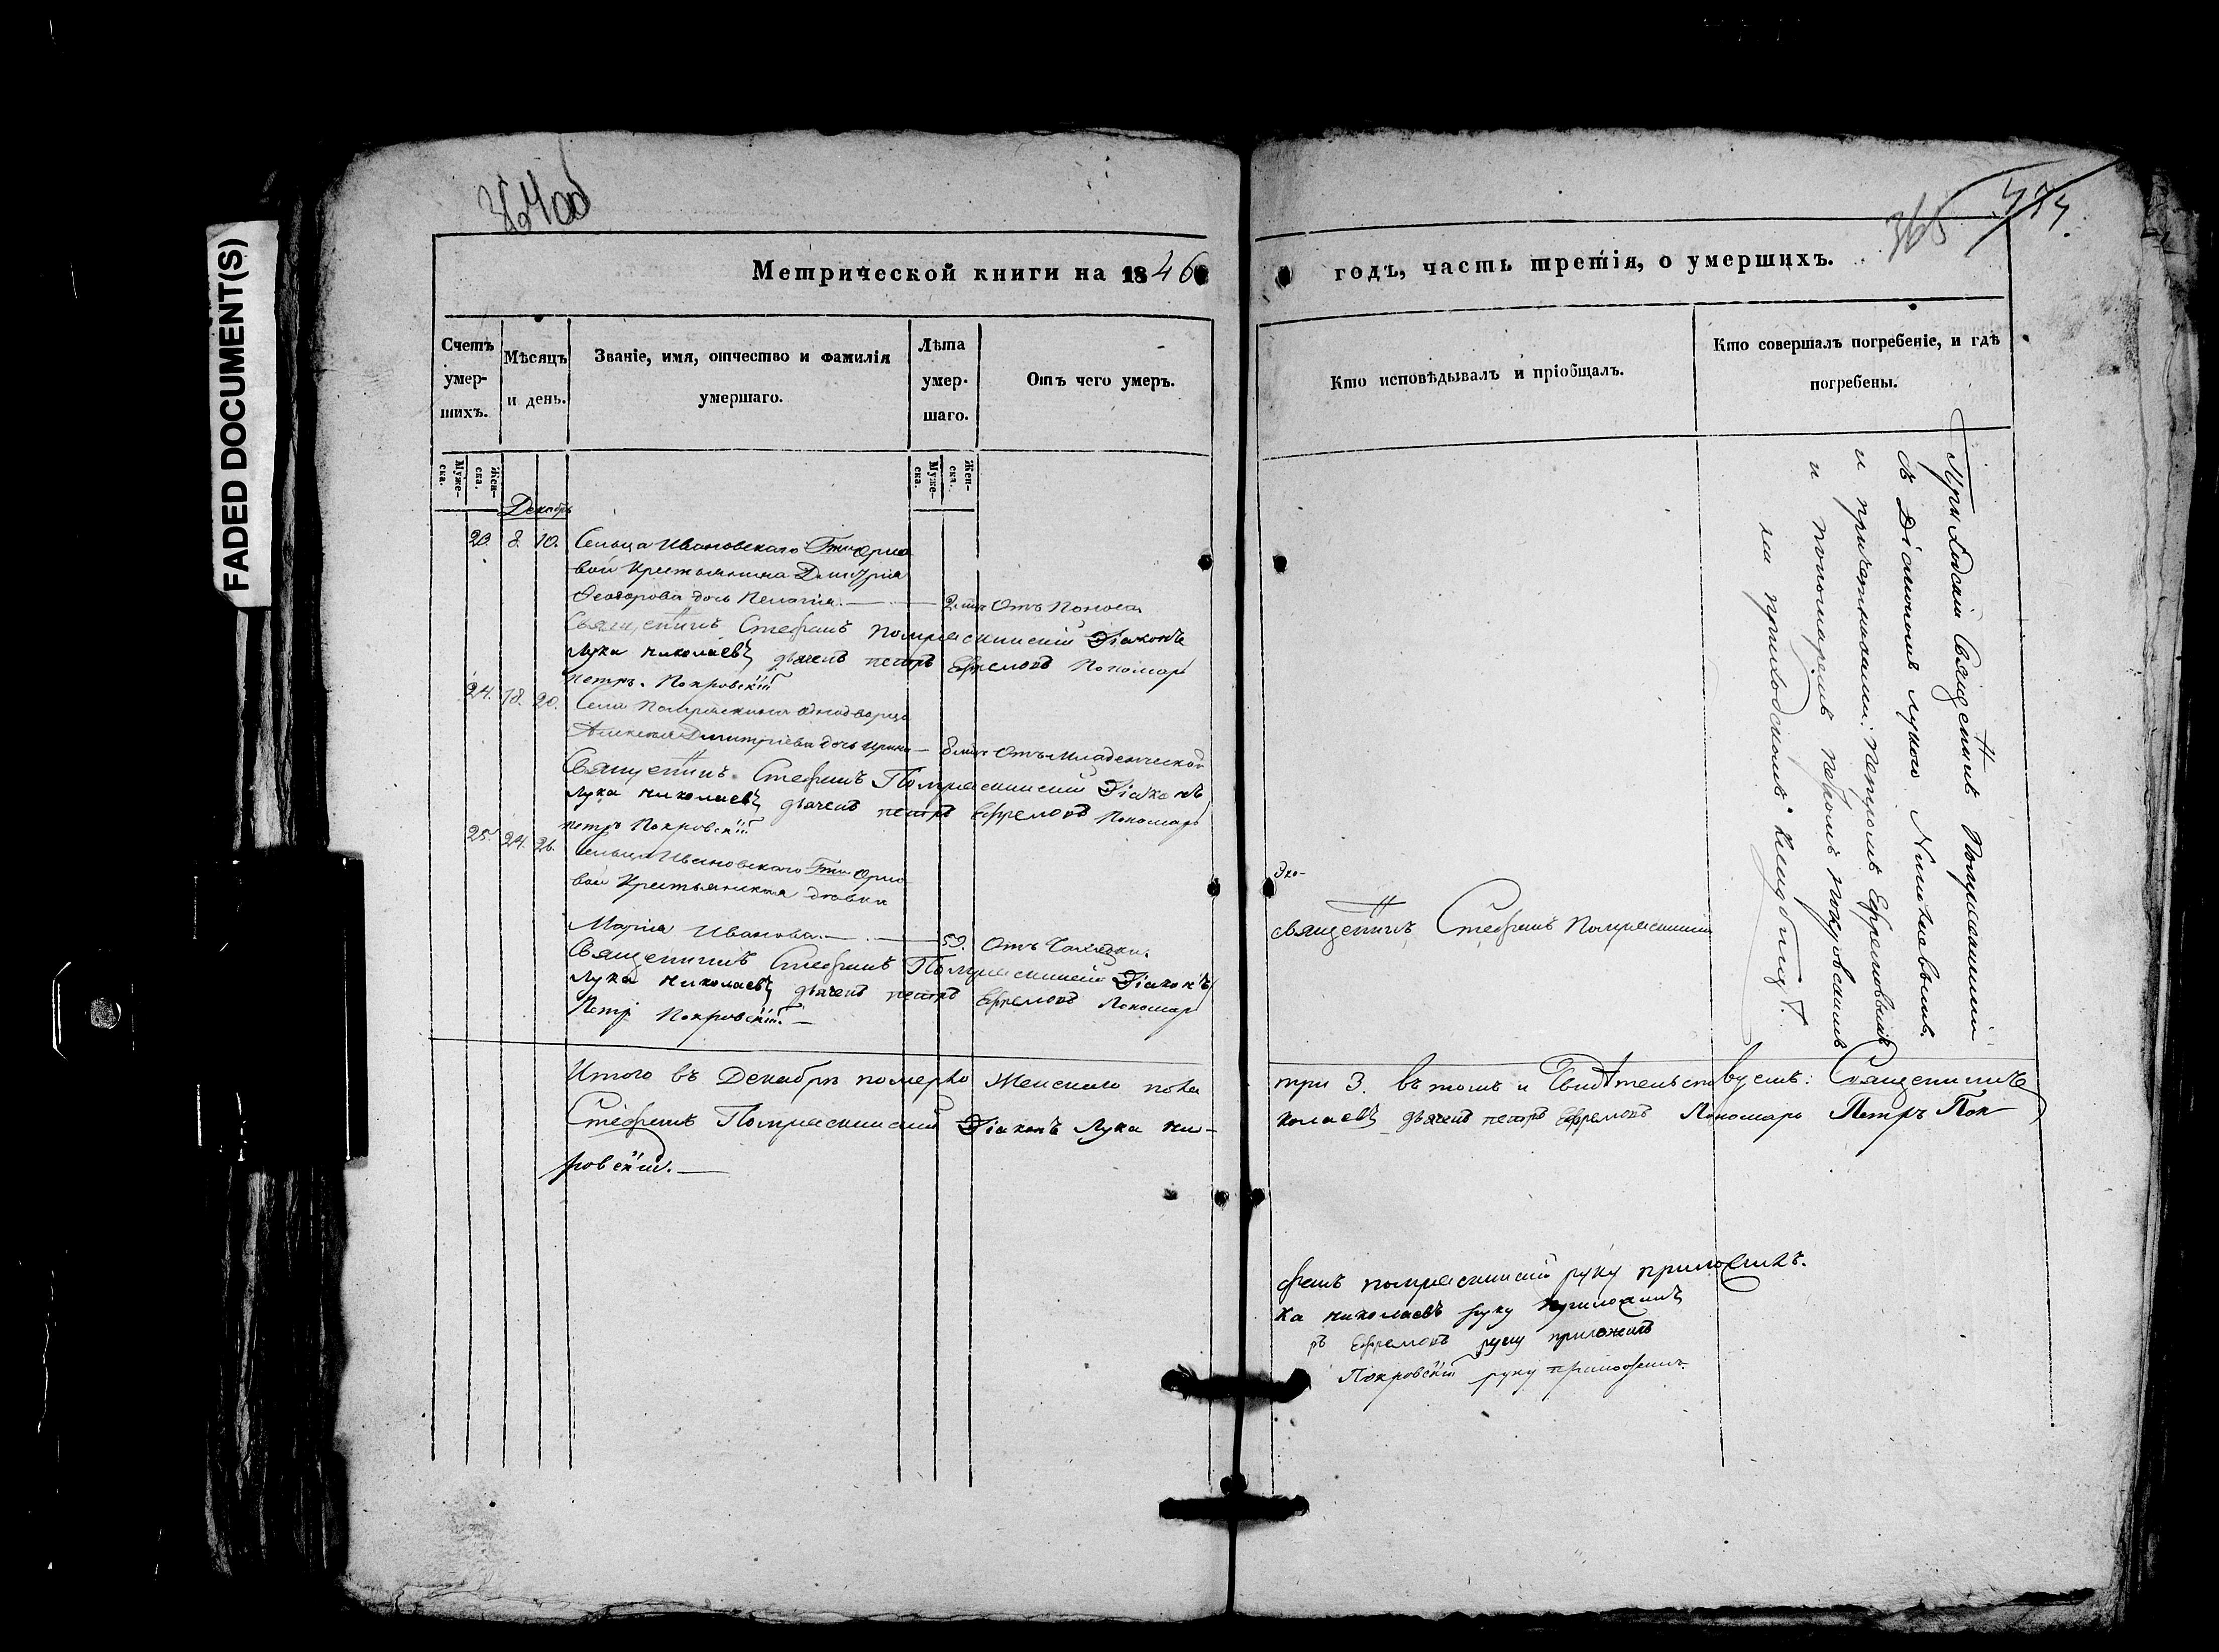 FADED DOCUMENT(S)
364об
Метрической книги на 1846
Счетъ умерших.
Мѣсяцъ и день.
Званіе, имя, отчество и фамилія умершаго.
Лѣта умершаго.
Отъ чего умеръ.
Муже-ска.
Жен-ска.
Муже-ска.
Жен-ска.
Декабрь
8. 10. Сельца Ивановскаго Гжи Орло
вой Крестьянина Димитрія
Ѳеодорова дочь Пелагія. — 2. Отъ Поноса
Священникъ Стефанъ Діаконъ
Лука Николаевъ дьячекъ петръ Ефремовъ Пономарь
петръ Покровскій
24. 18. 20. Села однодворца
Димитріева дочь Ирина — 8 Отъ младенческой
Священникъ Стефанъ Діаконъ
Лука Николаевъ дьячекъ петръ Ефремовъ Пономарь
петръ Покровскій
25. 24. 26. Сельца Ивановскаго Гжи Орло
вой Крестьянская
Марія Иванова. — 50. Отъ Чахотки.
Священникъ Стефанъ Діаконъ
Лука Николаевъ дьячекъ петръ Ефремовъ Пономарь
Петръ Покровскій. —
Итого въ Декабрѣ померло Женскаго пола
Стефанъ Діаконъ Лука Ни-
ровскій. —
365
годъ, часть третія, о умершихъ.
Кто исповѣдывалъ и пріобщалъ.
Кто совершалъ погребеніе, и гдѣ погребены.
Приходскій Священникъ
съ Діакономъ Лукою Николаевымъ.
и причетниками: Петромъ Ефремовымъ
и пономаремъ петромъ Покровскимъ
на приходскомъ кладбищѣ.
священникъ Стефанъ
три 3. въ томъ и Свидѣтельствуемъ: Священникъ
колаевъ дьячекъ петръ Ефремовъ Пономарь Петръ Пок-
фанъ руку приложилъ.
ка николаевъ руку приложилъ
ръ Ефремовъ руку приложилъ
Покровскій руку приложилъ.